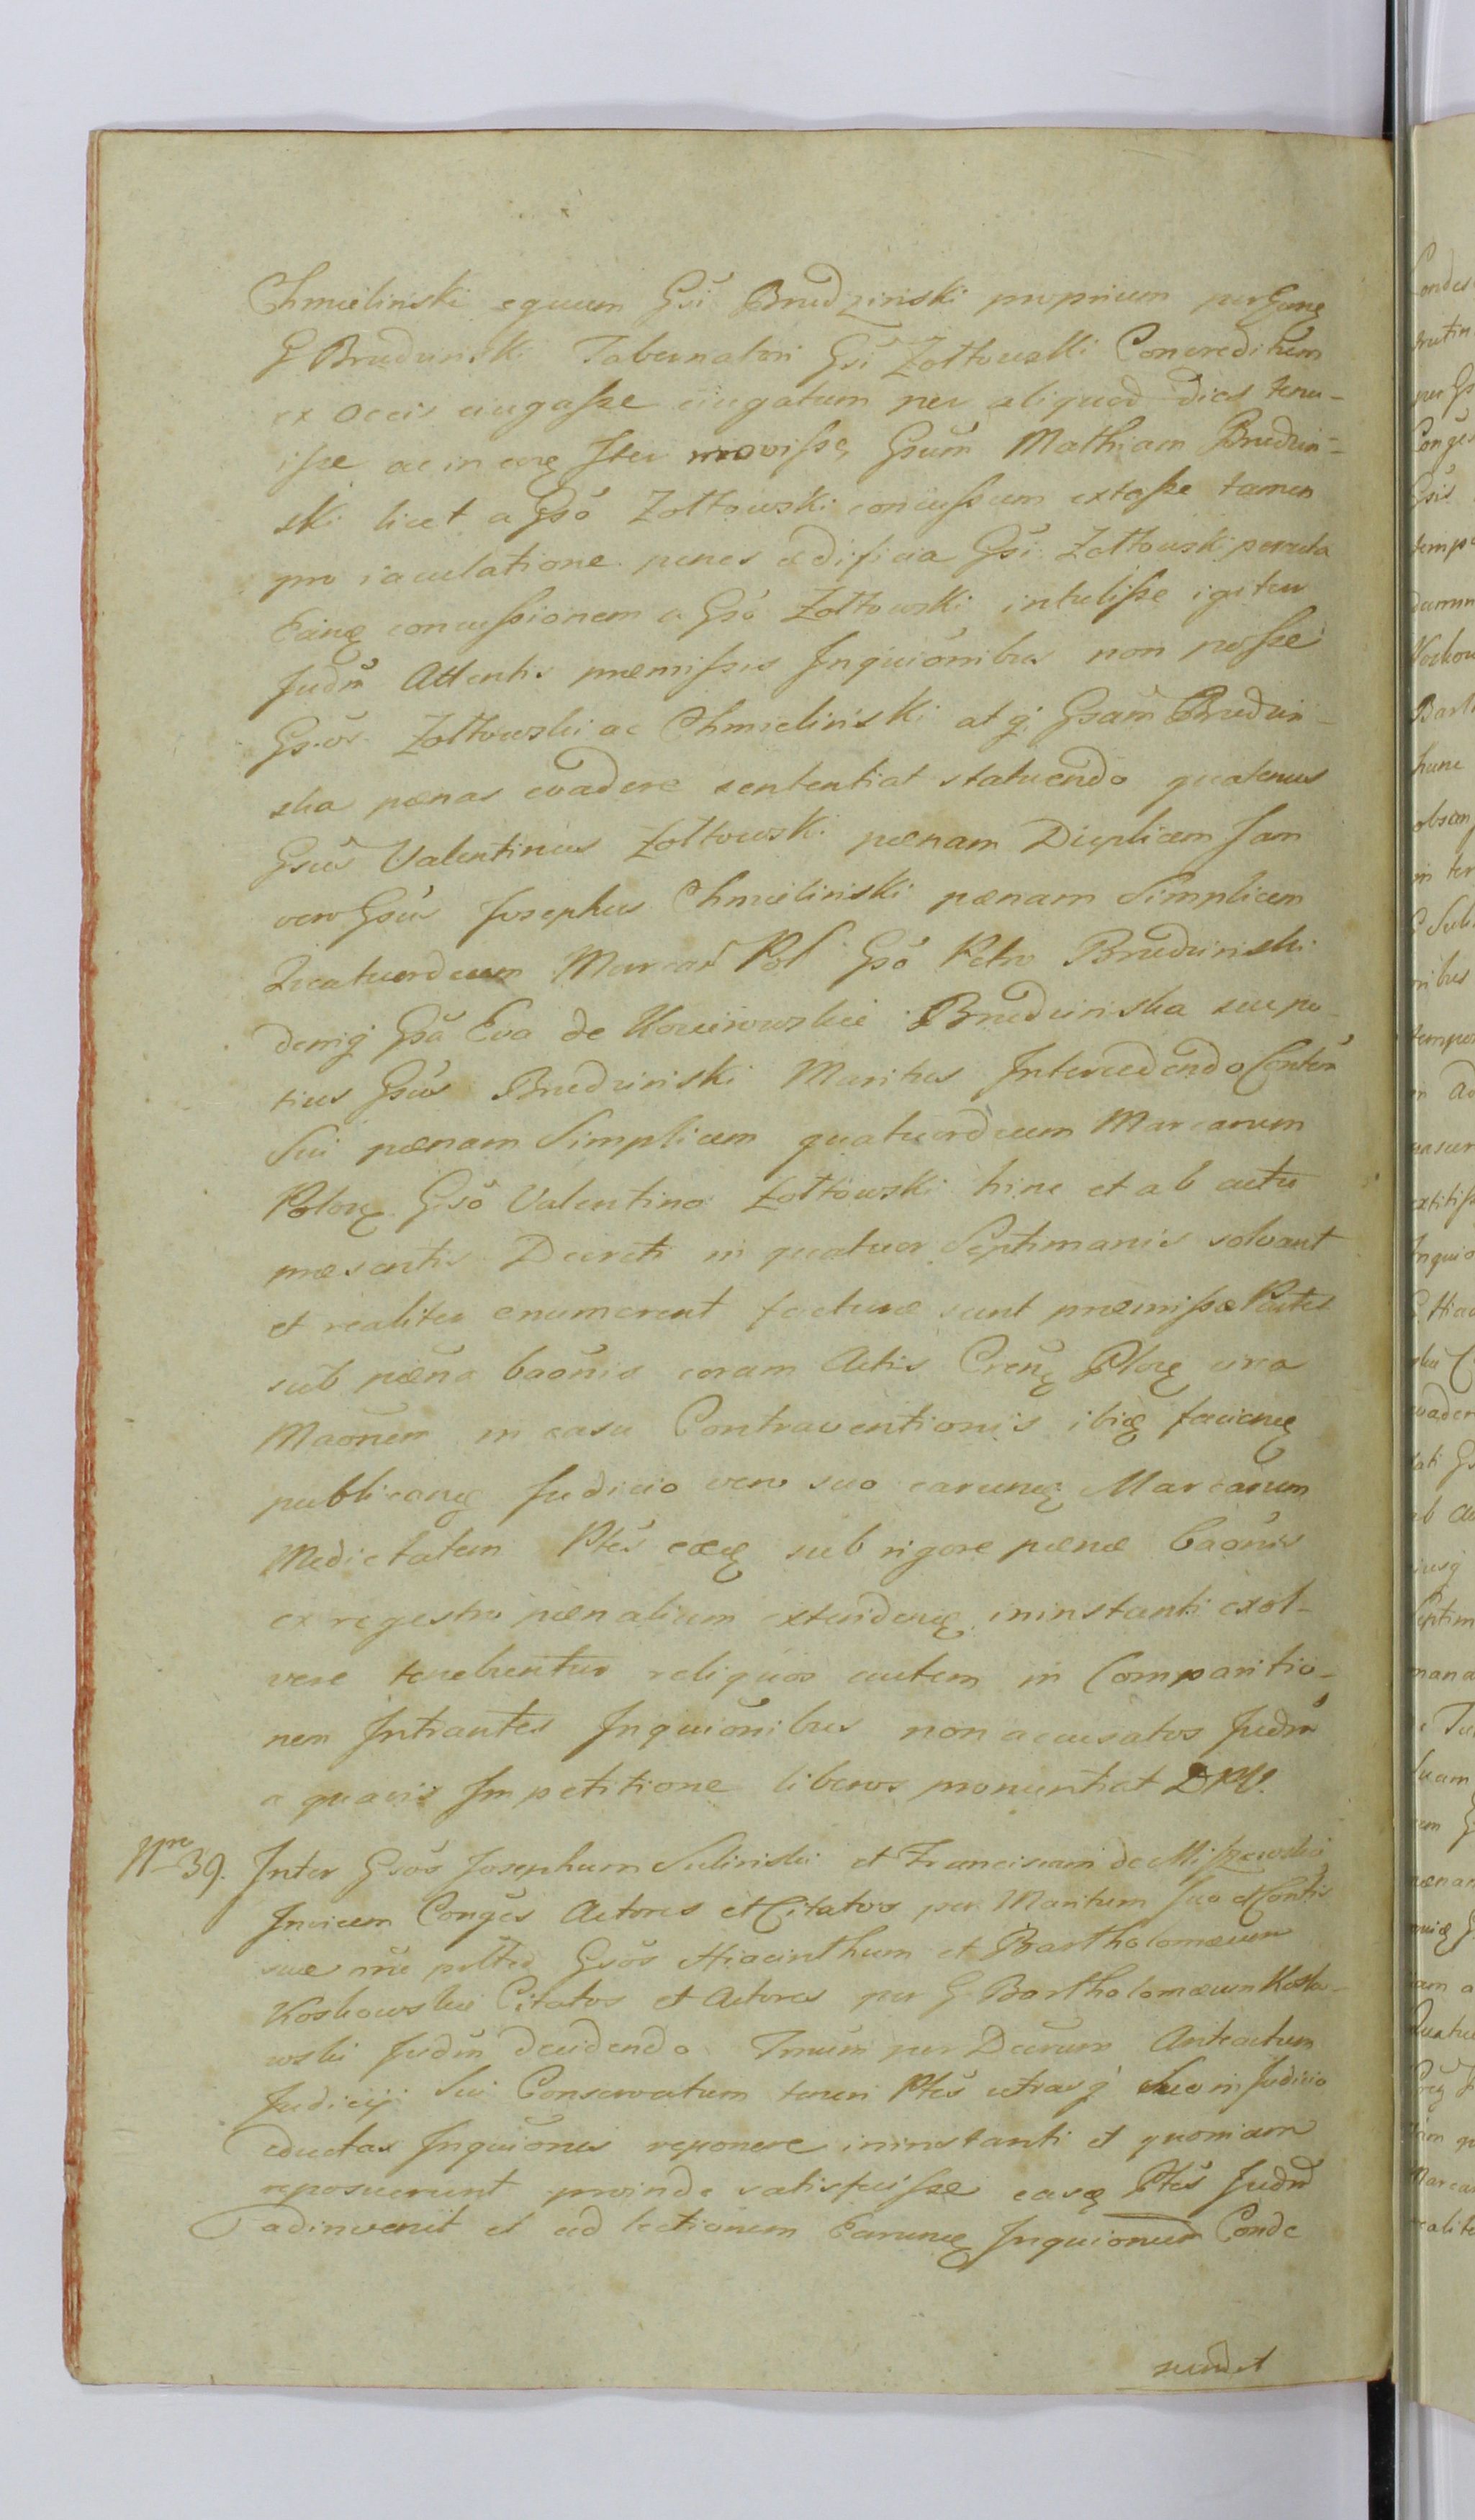 Chmielinski equum Gsi Brudzinski proprium per Eunq
G Brudzinski Tabernatori Gsi Zołtowski Concreditum
ex occis eiugasse eiugatum per aliquod dies tenu-
isse ac in eoq Iter movisse, Gsum Mathiam Brudzin-
ski licet a Gso Zołtowski concussum extasse tamen
pro iaculatione penes ædificia Gsi Zołtowski peracta
Eanq concussionem a Gso Zołtowski intulisse igitur
Judm Attentis præmissis Inquionibus non posse
Gsos Zołtowski ac Chmielinski atq Gsam Brudzin-
ska pænas evadere sententiat statuendo quatenus
Gsus Valentinus Zołtowski pænam Duplicem Jam
vero Gsus Josephus Chmielinski pænam Simplicem
Quatuordecim Marcar Pol Gso Petro Brudzinski
deniq Gsa Eva de Brudzinska seu po-
tius Gsus Brudzinski Maritus Intercedendo Conten
Sui pænam Simplicem quatuordecim Marcarum
Polonq Gso Valentino Zołtowski hinc et ab actu
præsentis Decreti in quatuor Septimanis solvant
et realiter enumerent facturæ sunt præmissæ Partes
sub pæna baonis coram Actis Crenq Plonq una
Maonem in casu Contraventionis ibiq facienq
publicanq Judicio vero suo earunq Marcarum
Medietatem Ptes eæq sub rigore pænæ baonis
ex regestro pænalium extendenq ininstanti exol-
vere tenebuntur reliquos autem in Comparitio-
nem Intrantes Inquionibus non accusatos Judm
a quavis Impetitione liberos pronuntiat DPV.
Nro 39. Inter Gsos Josephum Sulinski et Franciscam de Miszewskie
Invicem Conges Actores et Citatos per Maritum suo et Contis
suæ nne pttes Gsos Hiacinthum et Bartholomæum
Koskowskie Citatos et Actores per G Bartholomæum Kosko-
wski Judm decidendo. Imum per Decrum Anteactum
Judicij Sui Conservatum teneri Ptes utrasq Suo in Judicio
eductas Inquiones reponere ininstanti et quoniam
reposuerunt proinde satisfecisse easq Ptes Judm
adinvenit et ad lectionem Earunq Inquionum Conde
scendit